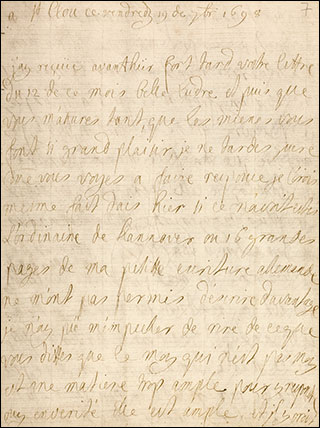 a St Clou ce vendredy 19 de 7br 1698 7
j'ay receue avanthier fort tard vostre lettre
du 12 de ce mois belle Ludre et puis que
vous m'asures tant que les mienes vous
font si grand plaisir, je ne tardes
que vous voyes a faire responce je l'orois
mesme fait dais hier si ce n'avoit estes
l'ordinaire de Hannover ou 16 grandes
pages de ma petitte escriture allemande
ne m'ont pas permis d'escrire davantage
je n'ay pü m'empecher de rire de ce que
vous dittes que le moy qui n'est pas moy
est une matiere trop ample pour
ouy en verité elle est ample, et il y orois